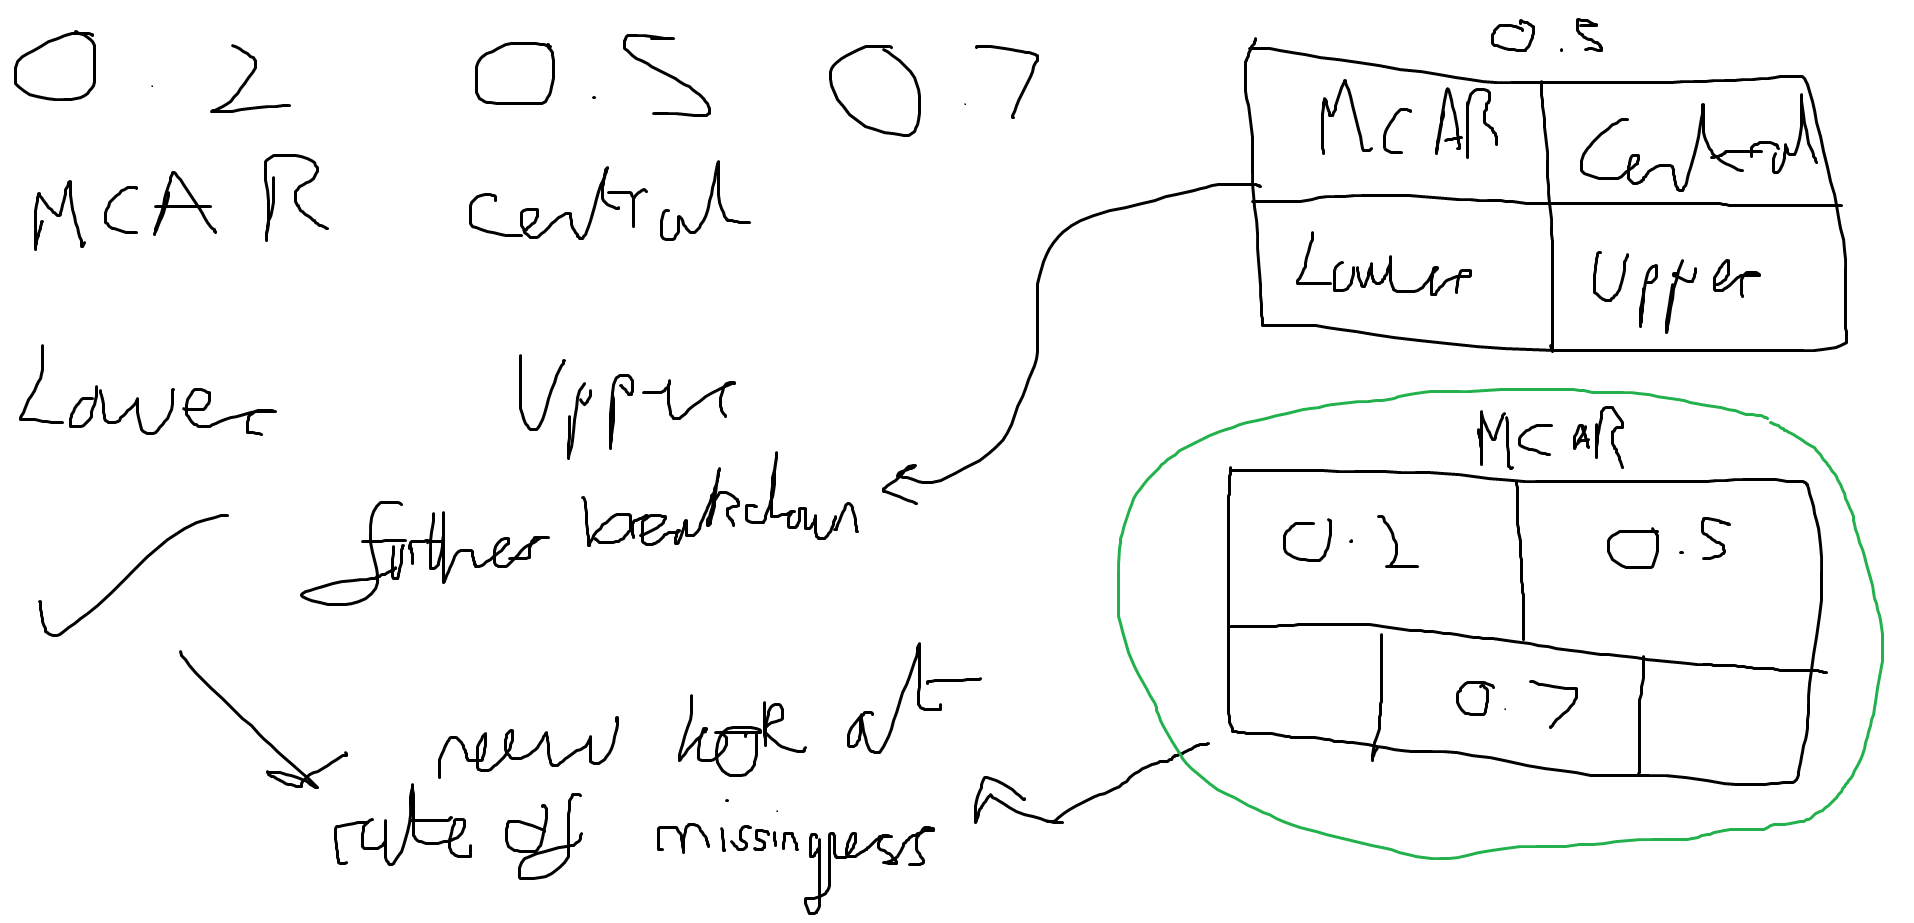 0.2 0.5 0.7
MCAR Central
Lower Upper
further breakdown
new look at
rate of missingness
0.5
MCAR Central
Lower Upper
MCAR
0.2 0.5
0.7